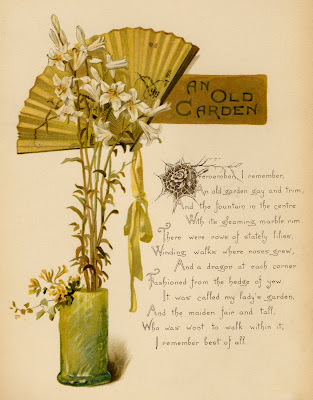 AN
OLD
GARDEN
I remember, I remember,
An old garden gay and trim,
And the fountain in the centre
With its gleaming marble rim.
There were rows of stately lilies,
Winding walks where roses grew,
And a dragon at each corner
Fashioned from the hedge of yew.
It was called my lady's garden,
And the maiden fair and tall,
Who was wont to walk within it,
I remember best of all.